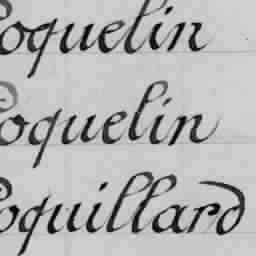 Coquelin
Coquelin
Coquillard